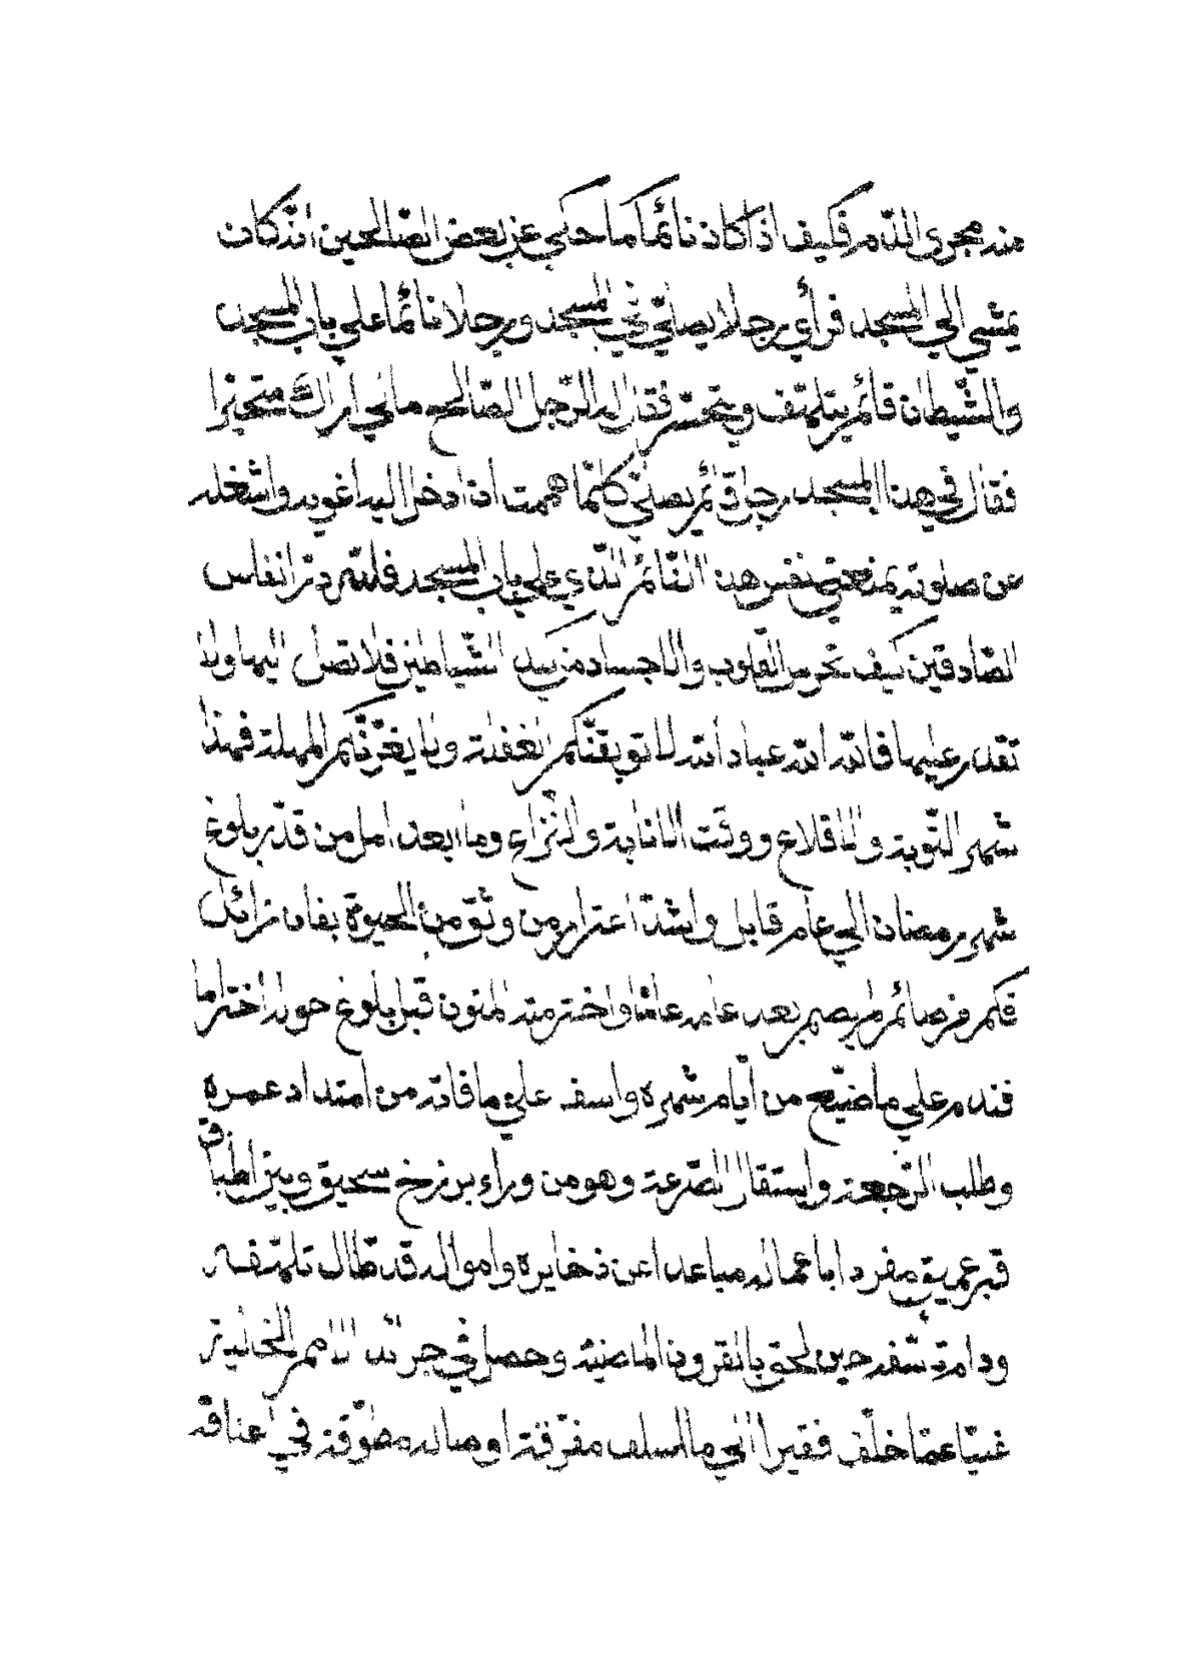 منه مجرى الدّم فكيف اذا كان نائمًا كما حكي عن بعض الصّالحين انّه كان
يمشي الي المسجد فرأي رجلا يصلّي في المسجد ورجلا نائمًا علي باب المسجد
والشّيطان قائم يتلهّف ويتحسّر فقال له الرّجل الصّالح مالي اراك متحيّرا
فقال في هذا المسجد رجل قائم يصلّي كلّما هممت ان ادخل اليه اغويه واشغله
عن صلوته يمنعني نفس هذا النّائم الّذي علي باب المسجد فللّه درّ انفاس
الصّادقين كيف تحرس القلوب والاجساد من يد الشّياطين فلا تصل اليها ولا
تقدر عليها فاللّه اللّه عباد اللّه لا توبقنّكم الغفلة ولا يغرّنّكم المهلة فهذا
شهر التّوبة والاقلاع ووقت الانابة والنّزاع وما ابعد امل من قدّر بلوغ
شهر رمضان الي عام قابل واشدّ اغترار من وثق من الحيوة بفان زائل
فكم من صائم لم يصم بعد عامه عامًا واخترمته المنون قبل بلوغ حوله اختراما
فندم علي ما ضيّع من ايّام شهره واسف علي ما فاته من امتداد عمره
وطلب الرّجعة واستقال الصّرعة وهو من وراء برزخ سحيق وبين اطباق
قبر عميق مفردا باعماله مباعدا عن ذخايره وامواله قد طال تلهّفه
ودام تأسّفه حين لحق بالقرون الماضية وحصل في جملة الامم الخالية
غنيّا عمّا خلّف فقيرا الي ما اسلف مفرّقة اوصاله مطوّقة في اعناقه